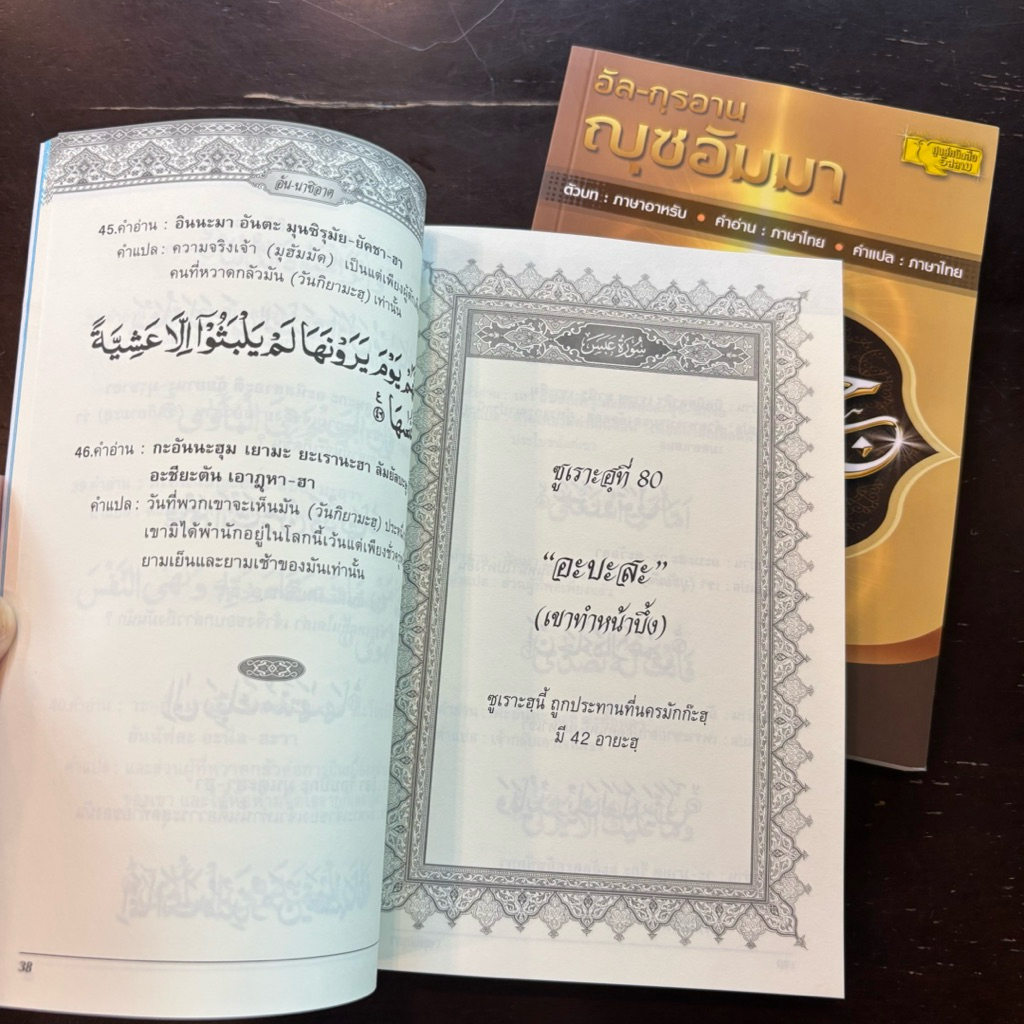 อัน-นาซิอาต
45.คำอ่าน : อินนะมา อันตะ มุนซิรุมัย-ยัคชา-ฮา
คำแปล : ความจริงเจ้า (มุฮัมมัด) เป็นแต่เพียงผู้
คนที่หวาดกลัวมัน (วันกิยามะฮฺ) เท่านั้น
يَوْمَ يَرَوْنَهَا لَمْ يَلْبَثُوٓا۟ إِلَّا عَشِيَّةً
46.คำอ่าน : กะอันนะฮุม เยามะ ยะเรานะฮา ลัมยัลบะ
อะชียะตัน เอาฎุหา-ฮา
คำแปล : วันที่พวกเขาจะเห็นมัน (วันกิยามะฮฺ)
เขามิได้พำนักอยู่ในโลกนี้เว้นแต่เพียงชั่ว
ยามเย็นและยามเช้าของมันเท่านั้น
38
سُورَةُ عَبَسَ
ซูเราะฮฺที่ 80
“อะบะสะ”
(เขาทำหน้าบึ้ง)
ซูเราะฮฺนี้ ถูกประทานที่นครมักก๊ะฮฺ
มี 42 อายะฮฺ
อัล-กุรอาน
ญุซอัมมา
ศูนย์หนังสือ
อิสลาม
ตัวบท : ภาษาอาหรับ • คำอ่าน : ภาษาไทย • คำแปล : ภาษาไทย